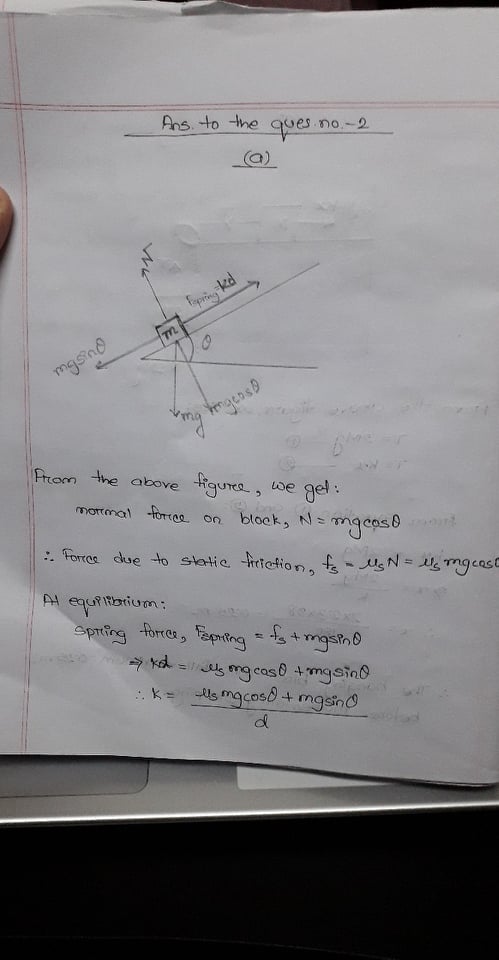 Ans. to the ques. no.-2
(a)
N
Fspring=kd
m
θ
mgsinθ
mgcosθ
mg
From the above figure, we get:
normal force on block, N = mgcosθ
∴ Force due to static friction, fs = μsN = μsmgcosθ
At equilibrium:
Spring force, Fspring = fs + mgsinθ
⇒ kd = μsmgcosθ + mgsinθ
∴ k = μsmgcosθ + mgsinθ
d